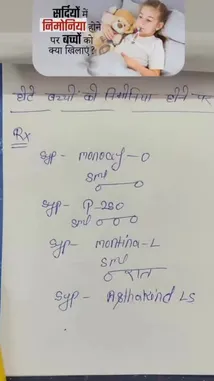 सर्दियों में
निमोनिया होने
पर बच्चों को
क्या खिलाएं?
छोटे बच्चों को निमोनिया होने पर
Rx
Syp - monocef-O
5ml
Syp - P-250
5ml
Syp - montina-L
5ml
रात
Syp - Asthakind LS